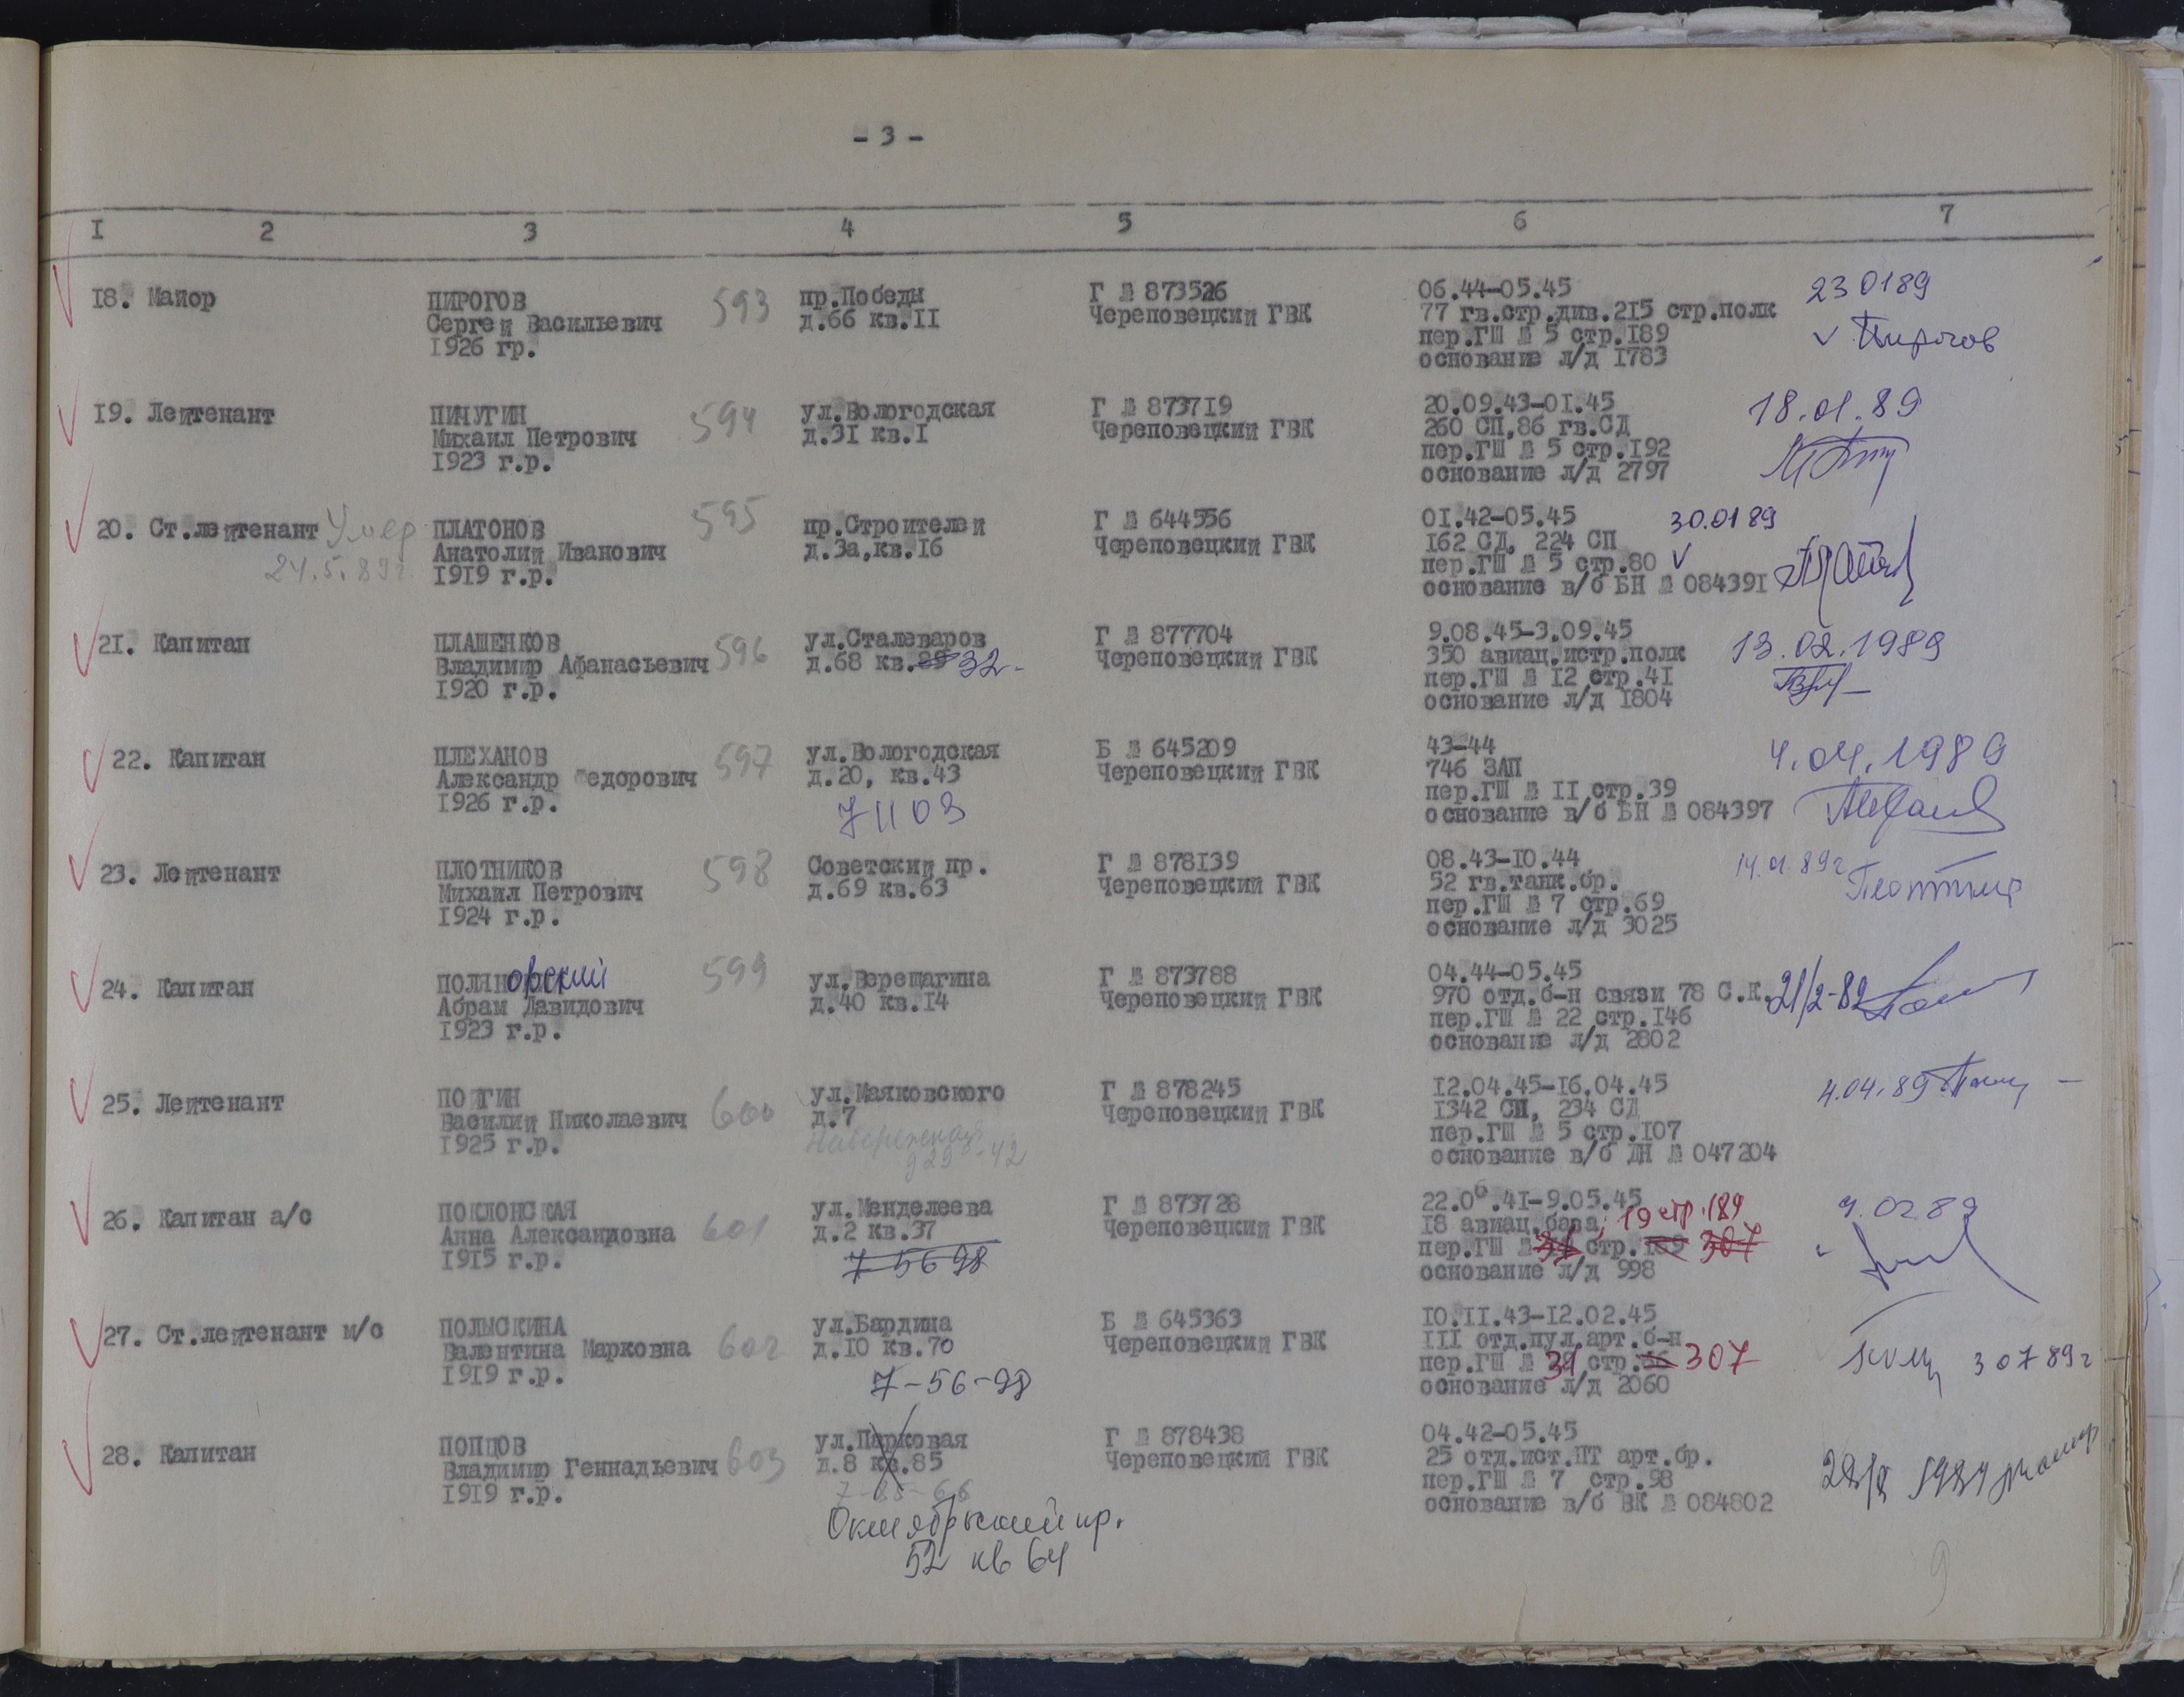 - 3 -
I 2 3 4 5 6 7
18. Майор ПИРОГОВ 593 пр.Победы Г № 873526 06.44-05.45 23 01 89
Сергей Васильевич д.66 кв.II Череповецкий ГВК 77 гв.стр.див.215 стр.полк
1926 гр. пер.ГШ № 5 стр.189 Пирогов
основание л/д 1783
19. Лейтенант ПИЧУГИН 594 ул.Вологодская Г № 873719 20.09.43-01.45 18.01.89
Михаил Петрович д.31 кв.I Череповецкий ГВК 260 СП,86 гв.СД
1923 г.р. пер.ГШ № 5 стр.192
основание л/д 2797
20. Ст.лейтенант Умер ПЛАТОНОВ 595 пр.Строителей Г № 644556 01.42-05.45 30.01 89
24.5.89г. Анатолий Иванович д.3а,кв.16 Череповецкий ГВК 162 СД, 224 СП
1919 г.р. пер.ГШ № 5 стр.80
основание в/б БН № 084391
21. Капитан ПЛАШЕНКОВ 596 ул.Сталеваров Г № 877704 9.08.45-3.09.45 13.02.1989
Владимир Афанасьевич д.68 кв. 32 Череповецкий ГВК 350 авиац.истр.полк
1920 г.р. пер.ГШ № 12 стр.41
основание л/д 1804
22. Капитан ПЛЕХАНОВ 597 ул.Вологодская Б № 645209 43-44 4.04.1989
Александр Федорович д.20, кв.43 Череповецкий ГВК 746 ЗАП
1926 г.р. 7 11 03 пер.ГШ № II стр.39
основание в/б БН № 084397
23. Лейтенант ПЛОТНИКОВ 598 Советский пр. Г № 878139 08.43-10.44 14.01.89г
Михаил Петрович д.69 кв.63 Череповецкий ГВК 52 гв.танк.бр.
1924 г.р. пер.ГШ № 7 стр.69
основание л/д 3025
24. Капитан ПОЛЯНОВСКИЙ 599 ул.Верещагина Г № 873788 04.44-05.45
Абрам Давидович д.40 кв.14 Череповецкий ГВК 970 отд.б-н связи 78 С.К. 21/2-89
1923 г.р. пер.ГШ № 22 стр.146
основание л/д 2802
25. Лейтенант 600 ул.Маяковского Г № 878245 12.04.45-16.04.45 4.04.89
Василий Николаевич д.7 Череповецкий ГВК 1342 СП, 234 СД
1925 г.р. Набережная пер.ГШ № 5 стр.107
основание в/б ДН № 047204
26. Капитан а/с ПОКЛОНСКАЯ 601 ул.Менделеева Г № 873728 22.06.41-9.05.45
Анна Александровна д.2 кв.37 Череповецкий ГВК 18 авиац.база, 19 стр.189
1915 г.р. 7 56 98 пер.ГШ № 31 стр.189 307
основание л/д 998
27. Ст.лейтенант м/с ПОЛЫСКИНА 602 ул.Бардина Б № 645363 10.II.43-12.02.45
Валентина Марковна д.10 кв.70 Череповецкий ГВК III отд.пул.арт.б-н
1919 г.р. 7-56-98 пер.ГШ № 31 стр. 307 3 07 89г
основание л/д 2060
28. Капитан ПОПЦОВ 603 ул.Парковая Г № 878438 04.42-05.45
Владимир Геннадьевич д.8 кв.85 Череповецкий ГВК 25 отд.ист.ПТ арт.бр.
1919 г.р. пер.ГШ № 7 стр.98
основание в/б ВК № 084802
Октябрьский пр.
52 кв 64
9